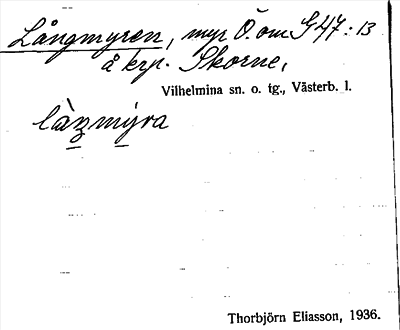 Långmyren, myr Ö. om G47:13
å krp. Skorne,
Vilhelmina sn. o. tg., Västerb. l.
Thorbjörn Eliasson, 1936.